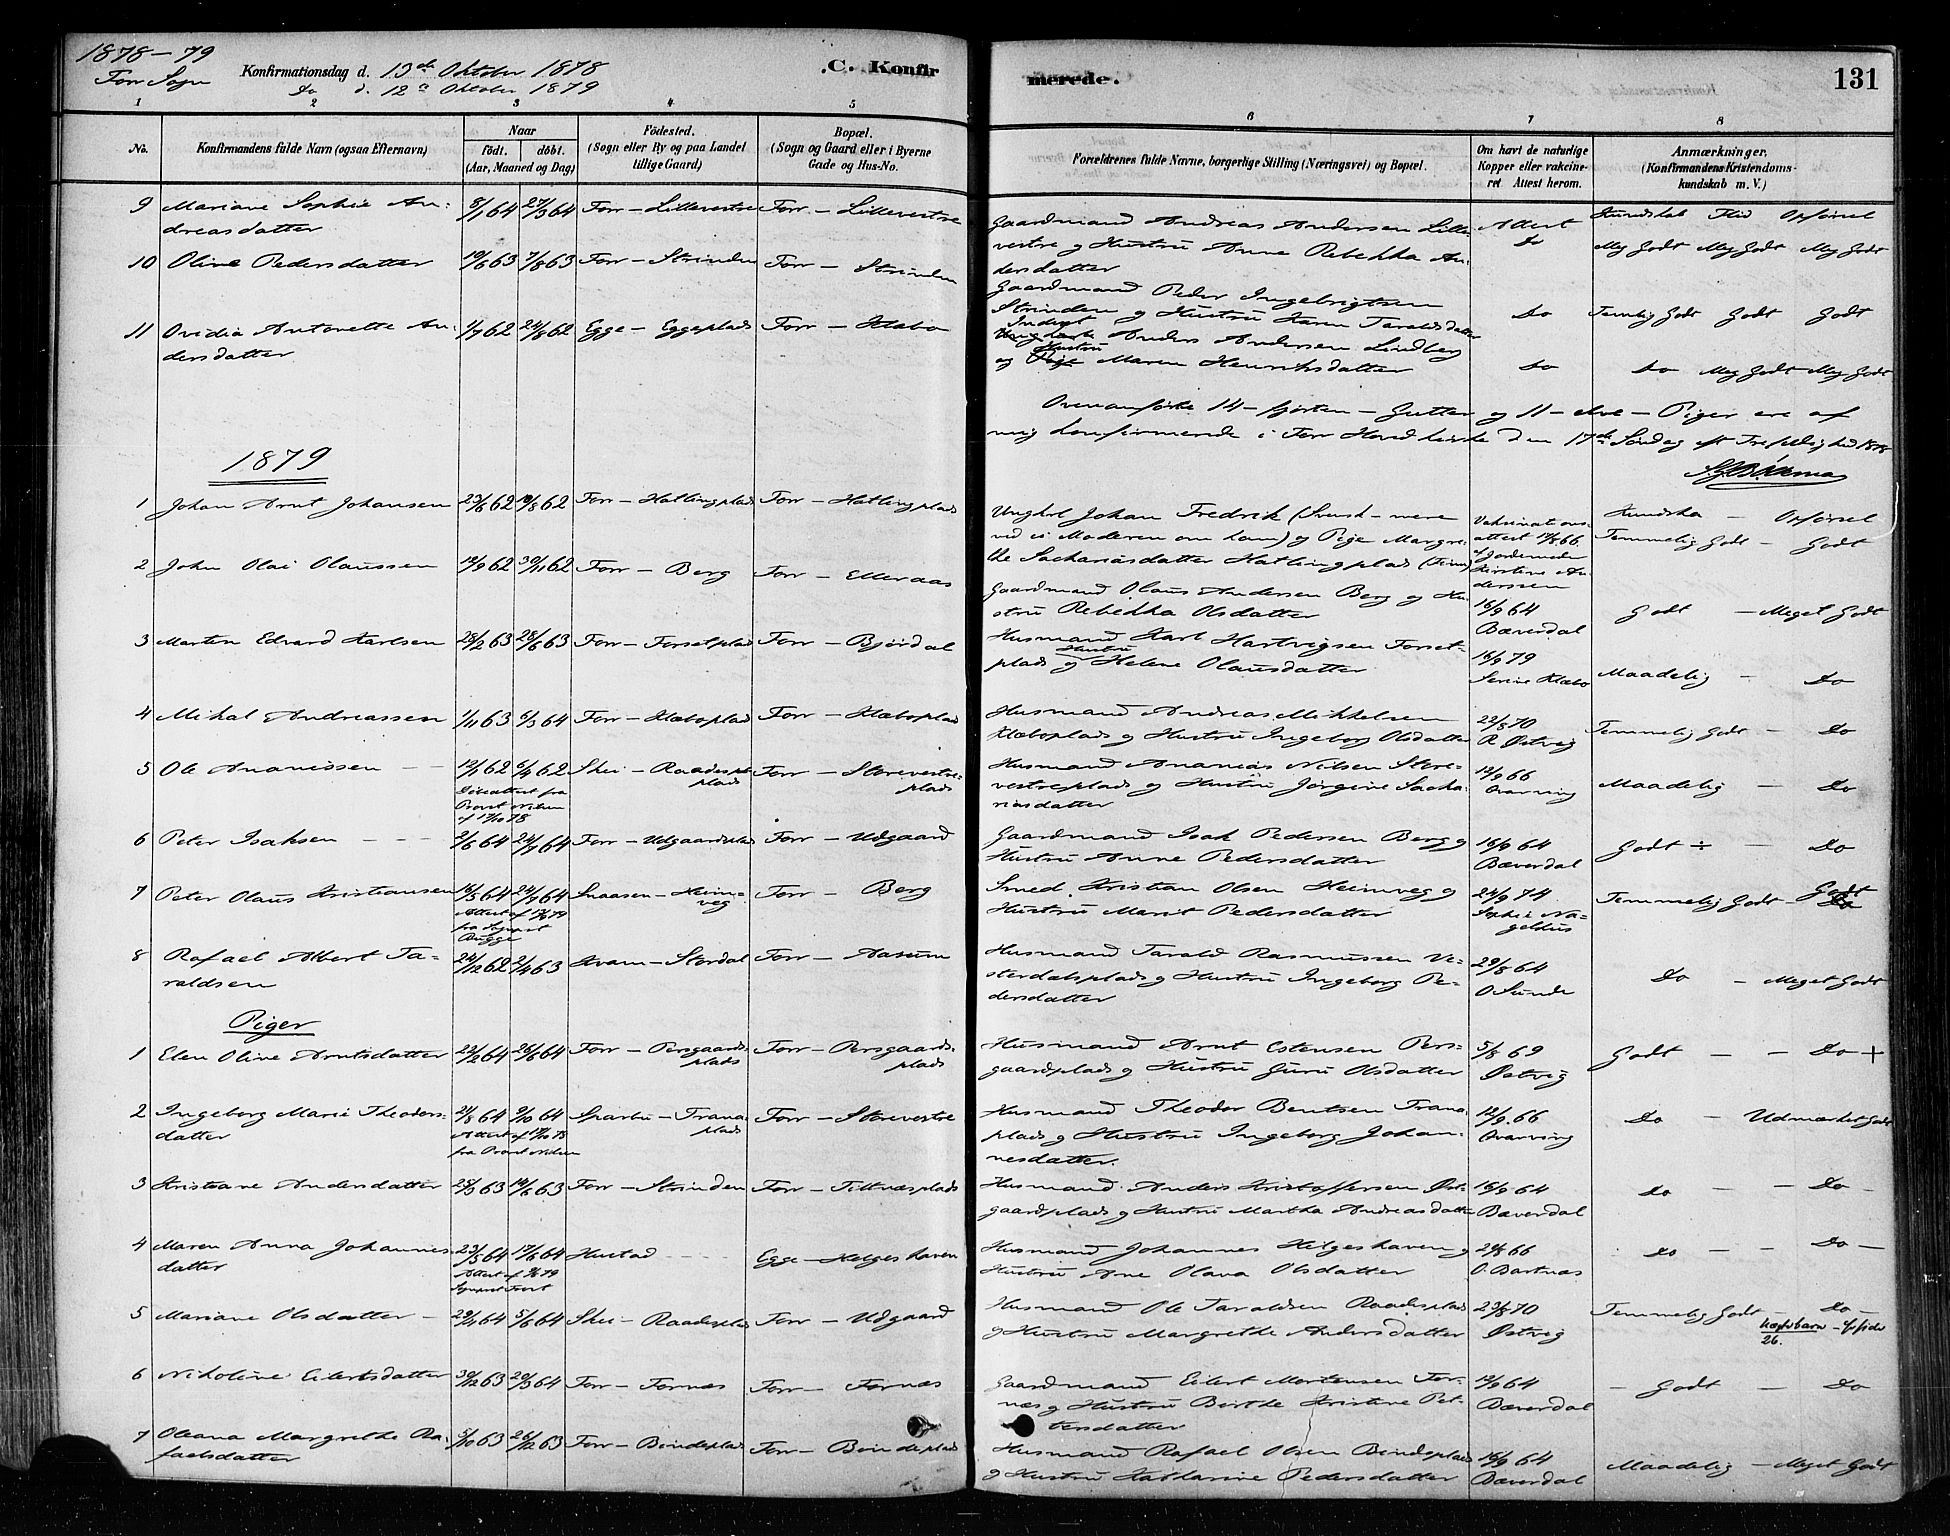 1878-79
For Sogn
Konfirmationsdag d. 13de Oktober 1878
Do d. 12te Oktober 1879
.C. Konfirmerede.
131
1 2 3 4 5 6 7 8
No.
Konfirmandens fulde Navn (ogsaa Efternavn)
Naar
födt. döbt.
(Aar, Maaned og Dag)
Födested.
(Sogn eller By og paa Landet
tillige Gaard)
Bopæl.
(Sogn og Gaard eller i Byerne
Gade og Hus-No.
Forældrenes fulde Navne, borgerlige Stilling (Næringsvei) og Bopæl.
Om havt de naturlige
Kopper eller vakcine-
ret Attest herom.
Anmærkninger.
(Konfirmandens Kristendoms-
kundskab m. V.)
9 Mariane Sophie An-
dreasdatter
8/1 64 27/3 64 For - Lillevestre For - Lillevestre
Gaardmand Andreas Andersen Lille-
vestre og Hustru Anne Rebekka An-
dersdatter
Attest
Do
Kundskab Flid Opførsel
Meg Godt Meg Godt Meg Godt
10 Oline Pedersdatter 19/6 63 7/8 63 For - Strinden For - Strinden
Gaardmand Peder Ingebrigtsen
Strinden og Hustru Karen Taraldsdatter
Do Temlig Godt Godt Godt
11 Ovidia Antonette An-
dersdatter
1/7 62 24/8 62 Egge - Eggeplads For - Klæbo
Inderst Anders Andersen Lindberg
og Hustru Maren Henriksdatter
Do Do Meg Godt Meg Godt
Ovenanførte 14 - fjorten - Gutter og 11 - elve - Piger ere af
mig konfirmerede i For Hovedkirke den 17de Søndag eft Trefoldighed 1878
1879
1 Johan Arnt Johansen 23/6 62 10/8 62 For - Hatlingplads For - Hatlingplads
Ungkrl Johan Fredrik (Svensk - mere
ved ei Moderen om ham) og Pige Margre-
the Sachariasdatter Hatlingplads
Vaksinations-
attest 17/8 66
af Jordemoder
Kirstine An-
derssen
Kundska - Opførsel
Temmelig Godt - Godt
2 John Olai Olaussen 19/9 62 30/11 62 For - Berg For - Elleraas
Gaardmand Olaus Andersen Berg og Hu-
stru Rebekka Olsdatter
16/9 64
Bæverdal
Godt - Meget Godt
3 Morten Edvard Karlsen 28/2 63 28/6 63 For - Forsetplad For - Bjørdal
Husmand Karl Hartvigsen Forset-
plads og Hustru Helene Olausdatter
16/9 79
Serine Klæbo
Maadelig - Do
4 Mikal Andreassen 1/11 63 6/3 64 For - Klæboplad For - Klæboplad
Husmand Andreas Mikkelsen
Klæboplads og Hustru Ingeborg Olsdatter
22/8 70
R Østvig
Temmelig Godt - Do
5 Ole Ananissen 12/1 62 6/4 62 Skei - Raadespl
plads For - Storevestre-
plads
Døbeattest fra
Provst Nilsen
af 17/10 78
Husmand Ananias Nilsen Store-
vestreplads og Hustru Jørgine Sacha-
riasdatter
12/9 66
Qvarving
Maadelig - Do
6 Peter Isaksen 2/6 64 24/7 64 For - Udgaardsplad For - Udgaard
Gaardmand Isak Pedersen Berg og
Hustru Anne Pedersdatter
16/9 64
Bæverdal
Godt ÷ - Do
7 Peter Olaus Kristiansen 16/5 64 24/7 64 Snaasen - Heim-
veg For - Berg
fra Sognpst
Bugge
Smed Kristian Olsen Heimveg og
Hustru Marit Pedersdatter
24/9 74
Sophie Na-
geldus
Temmelig Godt - Godt
8 Rafael Albert Ta-
raldsen
24/12 62 2/4 63 Kvam - Stordal For - Aasum
Husmand Tarald Rasmussen Ve-
sterdalsplads og Hustru Ingeborg Pe-
dersdatter
29/8 64
O Sunde
Do - Meget Godt
Piger
1 Elen Oline Arntsdatter 22/2 64 26/6 64 For - Persgaards
plads For - Persgaards-
plads
Husmand Arnt Estensen Pers-
gaardplads og Hustru Guru Olsdatter
5/8 69
Østvig
Godt - - Do +
2 Ingeborg Marie Theodors-
datter
21/8 64 9/10 64 Sparbu - Trana-
plads For - Storevestre
Attest af 17/10 78
fra Provst Nilsen
Husmand Theodor Bentsen Trana-
plads og Hustru Ingeborg Johan-
nesdatter.
12/9 66
Qvarving
Do - Udmærket Godt
3 Kristiane Andersdatter 28/3 63 14/6 63 For - Strinden For - Tiltnæsplads
Husmand Anders Kristoffersen Øst-
gaardplads og Hustru Martha Andreasdatter
16/9 64
Bæverdal
Do - - Do -
4 Maren Anna Johannes
datter
23/5 64 17/6 64 Hustad Egge - Helgeshaven
Husmand Johannes Helgeshaven og
Hustru Ane Olava Olsdatter
O. Bartnæs
Do - - Do -
5 Mariane Olsdatter 29/1 64 5/6 64 Skei - Raadesplad For - Udgaard
Husmand Ole Taraldsen Raadesplad
og Hustru Margrethe Andersdatter
23/8 70
Østvig
Temmelig Godt - Do -
26.
6 Nikoline Eilertsdatter 30/12 63 20/3 64 For - Fornæs For - Fornæs
Gaardmand Eilert Mortensen For-
næs og Hustru Birthe Kristine Pet-
tersdatter
12/9 64
Bæverdal
- Godt - Do
7 Oleana Margrethe Ra-
faelsdatter
5/10 63 26/12 63 For - Bindeplad For - Bindeplad
Husmand Rafael Olsen Bindeplads
og Hustru Katharine Pedersdatter
16/9 64
Bæverdal
Maadelig - Meget Godt